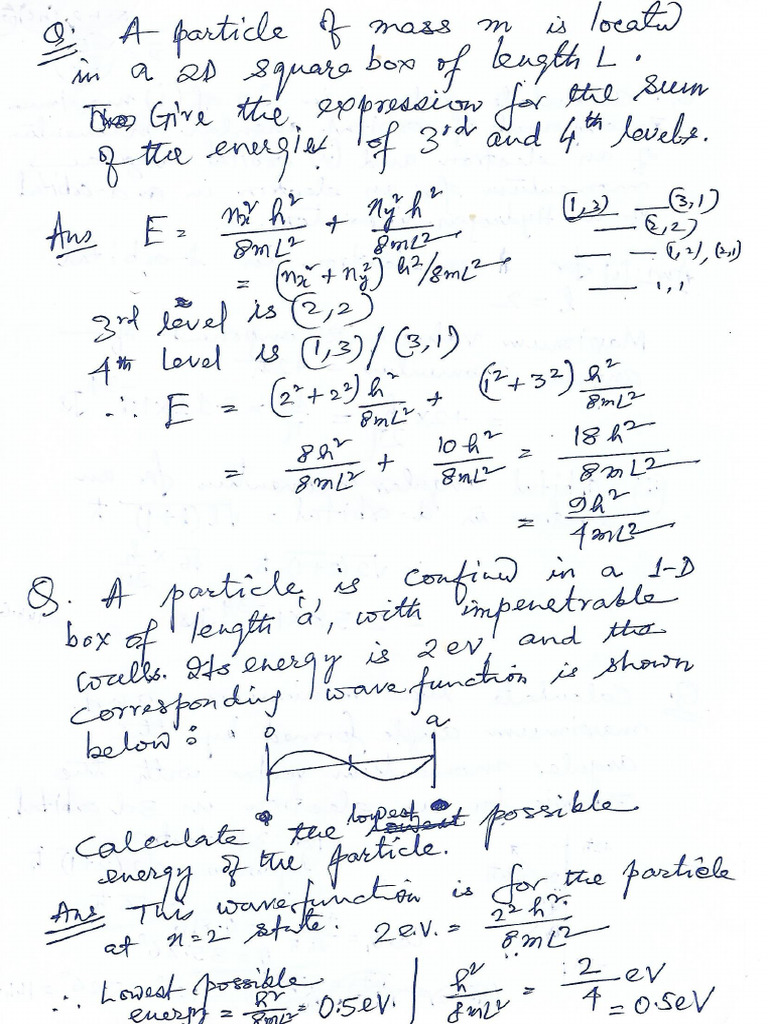 Q. A particle of mass m is located
in a 2D square box of length L.
Give the expression for the sum
of the energies of 3rd and 4th levels.
Ans E = nx² h²/8mL² + ny² h²/8mL²
= (nx² + ny²) h²/8mL²
(1,3) (3,1)
(2,2)
(1,2), (2,1)
1,1
3rd level is (2,2)
4th Level is (1,3)/(3,1)
∴ E = (2²+2²) h²/8mL² + (1²+3²) h²/8mL²
= 8h²/8mL² + 10h²/8mL² = 18h²/8mL²
= 9h²/4mL²
Q. A particle is confined in a 1-D
box of length 'a', with impenetrable
walls. Its energy is 2 eV, and the
corresponding wave function is shown
below:
0 a
Calculate the lowest possible
energy of the particle.
Ans This wavefunction is for the particle
at n=2 state. 2 e.V. = 2² h²/8mL²
∴ Lowest possible
energy = h²/8mL² = 0.5 eV. | h²/8mL² = 2/4 eV
= 0.5eV